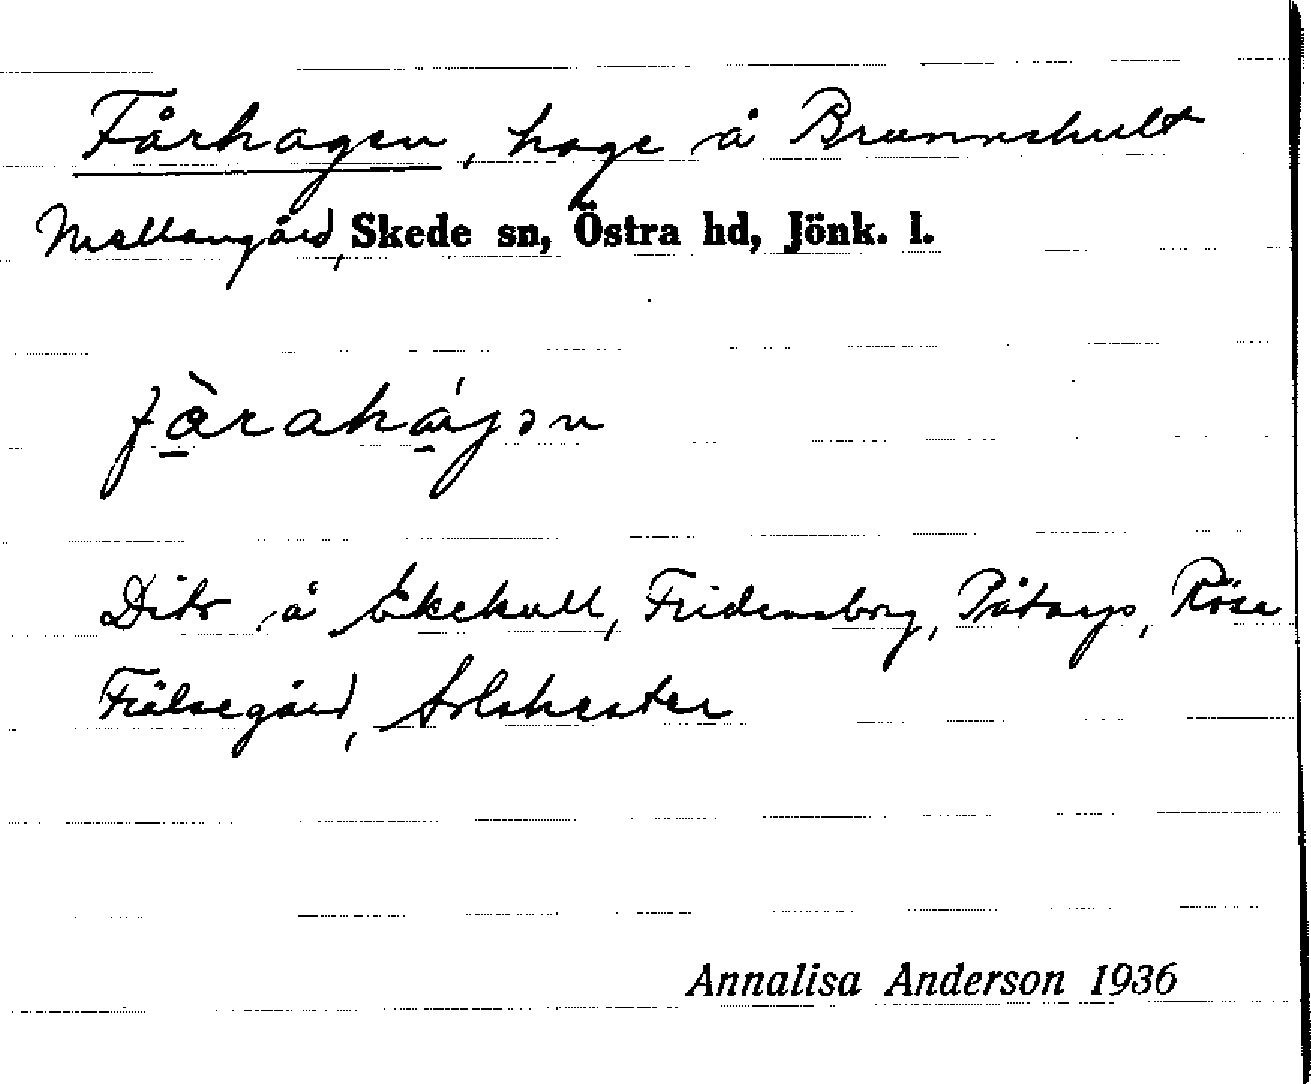 Fårhagen, hage å Brunnshult
Mellangård, Skede sn, Östra hd, Jönk. l.
fàrahágən
Dito å Ekekull, Fridensborg, Påtorp, Rösa
Frälsegård, Solshester
Annalisa Anderson 1936